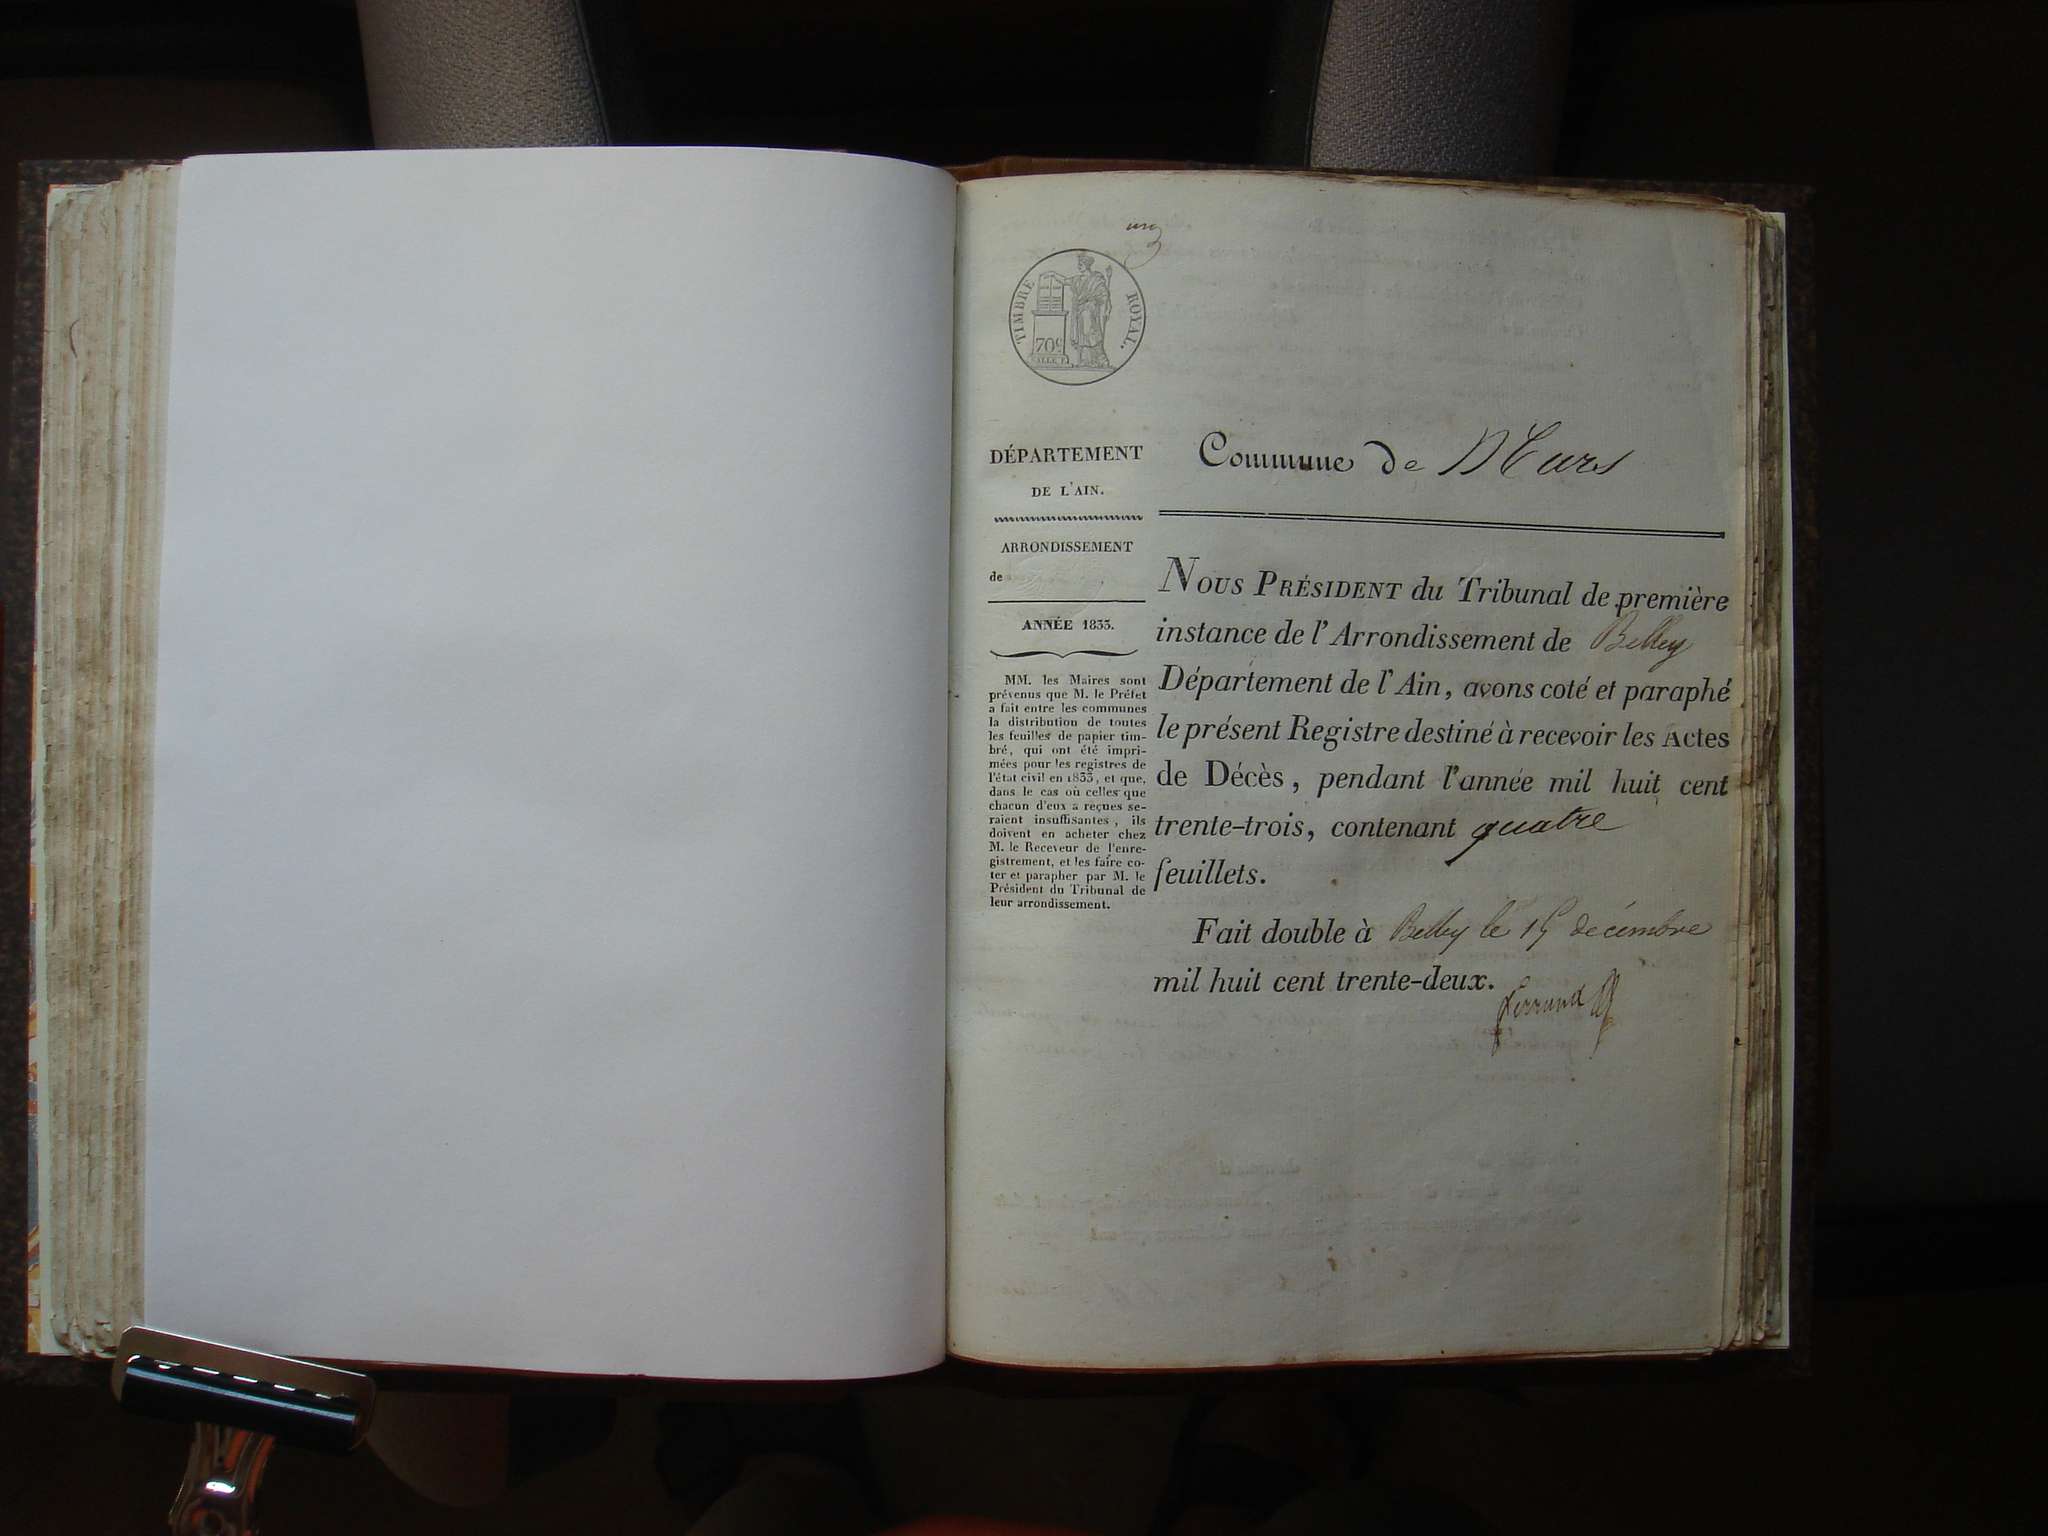 un
TIMBRE ROYAL.
70c
DÉPARTEMENT
DE L'AIN.
ARRONDISSEMENT
de
ANNÉE 1833.
MM. les Maires sont
prévenus que M. le Préfet
a fait entre les communes
la distribution de toutes
les feuilles de papier tim-
bré, qui ont été impri-
mées pour les registres de
l'état civil en 1833, et que,
dans le cas où celles que
chacun d'eux a reçues se-
raient insuffisantes, ils
doivent en acheter chez
M. le Receveur de l'enre-
gistrement, et les faire co-
ter et parapher par M. le
Président du Tribunal de
leur arrondissement.
Commune de Murs
NOUS PRÉSIDENT du Tribunal de première
instance de l'Arrondissement de Belley
Département de l'Ain, avons coté et paraphé
le présent Registre destiné à recevoir les Actes
de Décès, pendant l'année mil huit cent
trente-trois, contenant quatre
feuillets.
Fait double à Belley le 15 décembre
mil huit cent trente-deux.